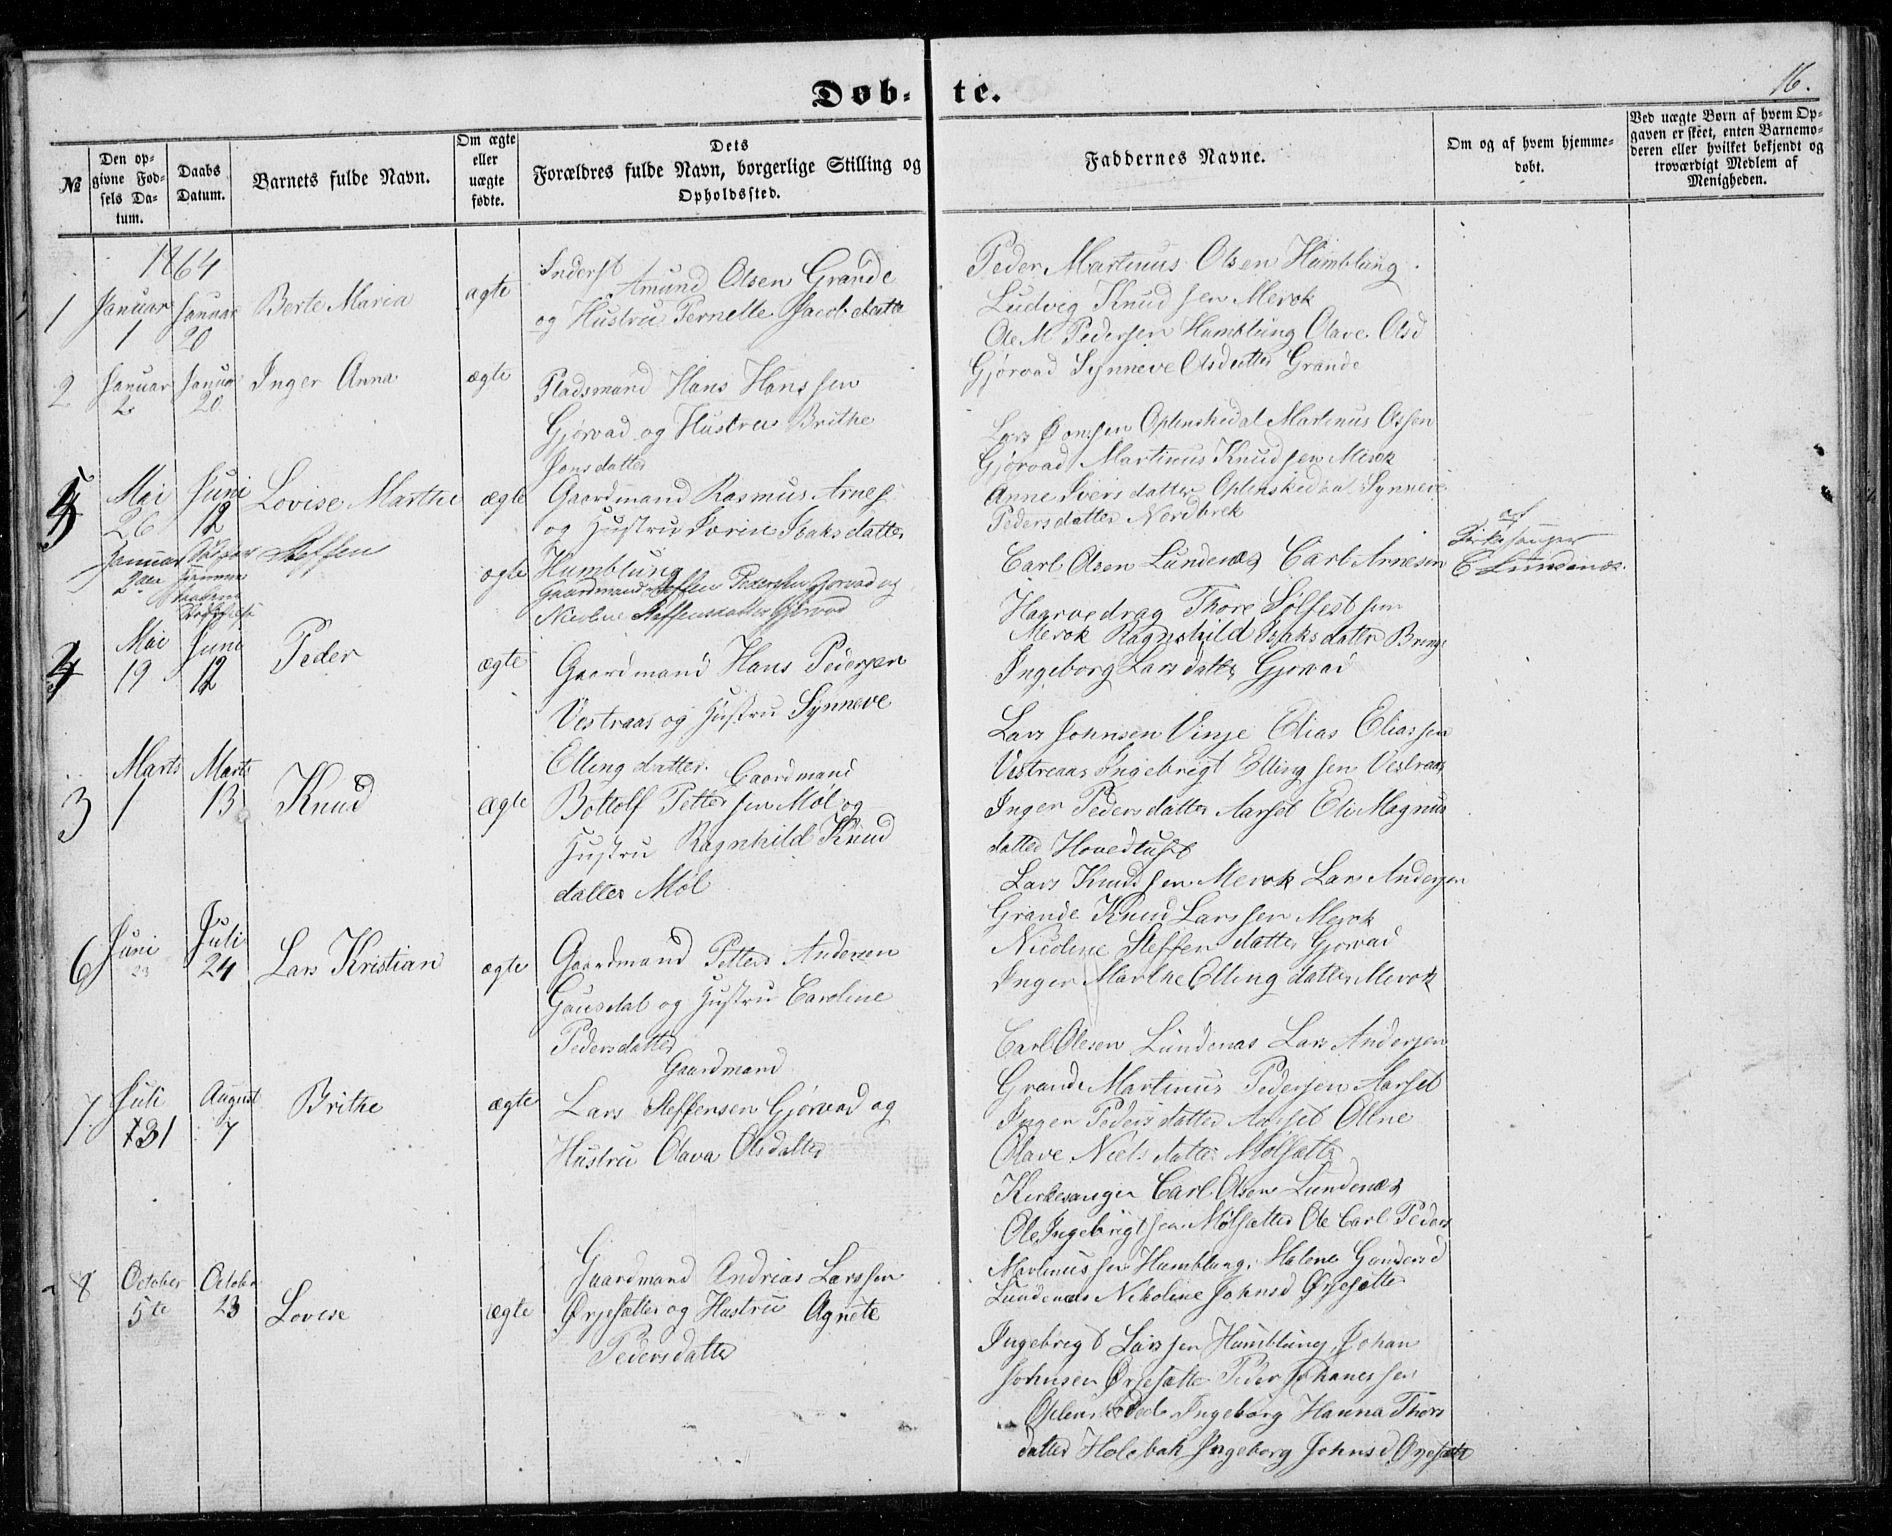 Døb- te.
16.
№
Den opgivne Fødsels Datum.
Daabs Datum.
Barnets fulde Navn.
Om ægte eller uægte fødte.
Dets Forældres fulde Navn, borgerlige Stilling og Opholdssted.
Faddernes Navne.
Om og af hvem hjemmedøbt.
Ved uægte Børn af hvem Opgaven er skeet, enten Barnemoderen eller hvilket bekjendt og troværdigt Medlem af Menigheden.
1864
1 Januar 1 Januar 20 Berte Maria ægte
Inderst Amund Olsen Grande
og Hustru Pernelle Jacobsdatter
Peder Martinus Olsen Humblung
Ludvig Knudsen Merok
Ole M Pedersen Humblung Olave Olsd
Gjørvad Synneve Olsdatter Grande
2 Januar 2 Januar 20 Inger Anna ægte
Pladsmand Hans Hanssen
Gjørvad og Hustru Brithe
Jonsdatter
Lars Oplenskedal Martinus Olsen
Gjørvad Martinus Knudsen Merok
Anne Iversdatter Oplenskedal Synneve
Pedersdatter Nordbrek
5 Mai 26 Juni 12 Lovise Marthe ægte
Gaardmand Rasmus Arnes
og Hustru Isaksdatter
Humblung
Carl Olsen Lundenæs Carl Arnesen
Haarvedrag Thore Sølfestsen
Merok Ragnhild Isaksdatter Bringe
Ingeborg Larsdatter Gjørvad
Januar Steffen ægte
Gaardmand Steffen Pedersen Gjørvad og
Nicoline Steffensdatter Gjørvad
af
Kirkesanger
C Lundenæs
4 Mai 19 Juni 12 Peder ægte
Gaardmand Hans Pedersen
Vestraas og Hustru Synneve
Ellingdatter
Lars Johnsen Vinje Elias Eliassen
Vestraas Ingebrigt Ellingsen Vestraas
Inger Pedersdatter Aarset Eli Magnus
datter Hovedtuset
3 Marts 1 Marts 13 Knud ægte
Gaardmand
Bottolf Pettersen Møl og
Hustru Ragnhild Knud
datter Møl
Lars Knudsen Merok Lars Andersen
Grande Knud Larssen Merok
Nicoline Steffensdatter Gjørvad
Inger Marthe Ellingdatter Merok
6 Juni 23 Juli 24 Lars Kristian ægte
Gaardmand Petter Andersen
Gausdal og Hustru Caroline
Pedersdatter
Carl Olesen Lundenæs Lars Andersen
Grande Martinus Pedersen Aarset
Inger Pedersdatter Aarset Oline
Olave Nielsdatter Mølsætter
7 Juli 31 August 7 Brithe ægte
Gaardmand
Lars Steffensen Gjørvad og
Hustru Olava Olsdatter
Kirkesanger Carl Olsen Lundenæs
Ole Ingebrigtsen Mølsætter Ole Carl Peders
Martinussen Humblung
Lundenæs Nikoline Johnsd Ørjesætter
8 October 5te October 23 Lovise ægte
Gaardmand Andrias Larssen
Ørjesætter og Hustru Agnete
Pedersdatter
Ingebrigt Larssen Humblung Johan
Johnsen Ørjesætter Peder Johanessen
Oplenskedal Ingeborg Hanna Thors
datter Holebak Ingeborg Johnsd Ørjesætter